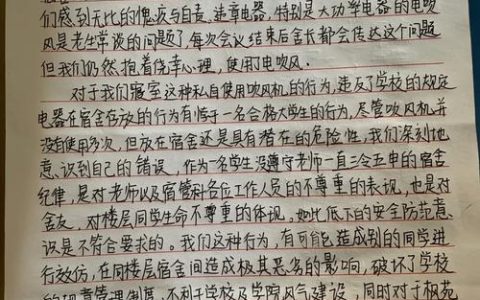 们感到无比的愧疚与自责。违章电器，特别是大功率电器的电吹
风是老生常谈的问题了，每次会议结束后舍长都会传达这个问题
但我们仍然抱着侥幸心理，使用了电吹风。
对于我们寝室这种私自使用吹风机的行为，违反了学校的规定
电器在宿舍存放的行为有悖于一名合格大学生的行为，尽管吹风机并
没有使用多次，但放在宿舍还是具有潜在的危险性，我们深刻地
意识到自己的错误，作为一名学生没遵守老师一直三令五申的宿舍
纪律，是对老师以及宿管科各位工作人员的不尊重的表现，也是对
舍友，对楼层同学生命不尊重的体现。如此低下的安全防范意
识是不符合要求的。我们这种行为，有可能造成别的同学进
行效仿，在同楼层宿舍间造成极其恶劣的影响，破坏了学校
管理制度，不利于学校及学院风气建设，同时对于